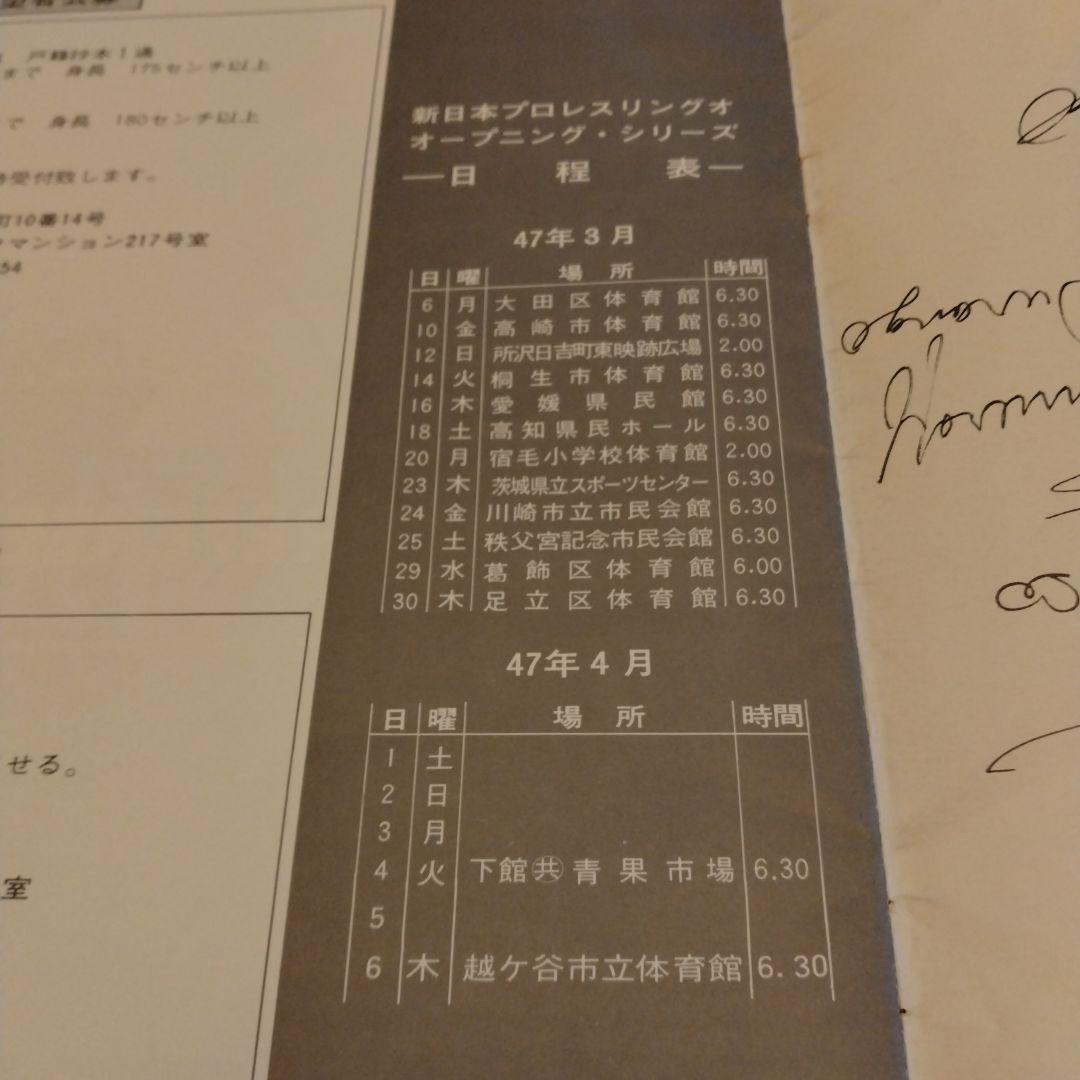 戸籍抄本1通
まで 身長 175センチ以上
で 身長 180センチ以上
受付致します。
町10番14号
マンション217号室
54
せる。
室
新日本プロレスリングオ
オープニング・シリーズ
―日 程 表―
47年3月
日 曜 場所 時間
6 月 大田区体育館 6.30
10 金 高崎市体育館 6.30
12 日 所沢日吉町東映跡広場 2.00
14 火 桐生市体育館 6.30
16 木 愛媛県民館 6.30
18 土 高知県民ホール 6.30
20 月 宿毛小学校体育館 2.00
23 木 茨城県立スポーツセンター 6.30
24 金 川崎市立市民会館 6.30
25 土 秩父宮記念市民会館 6.30
29 水 葛飾区体育館 6.00
30 木 足立区体育館 6.30
47年4月
日 曜 場所 時間
1 土
2 日
3 月
4 火 下館㊓青果市場 6.30
5
6 木 越ケ谷市立体育館 6.30